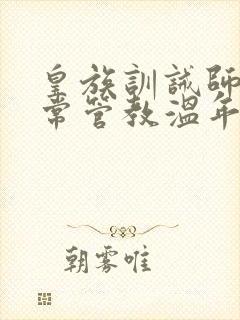 皇族訓誡師
常管教溫年
朝雾唯